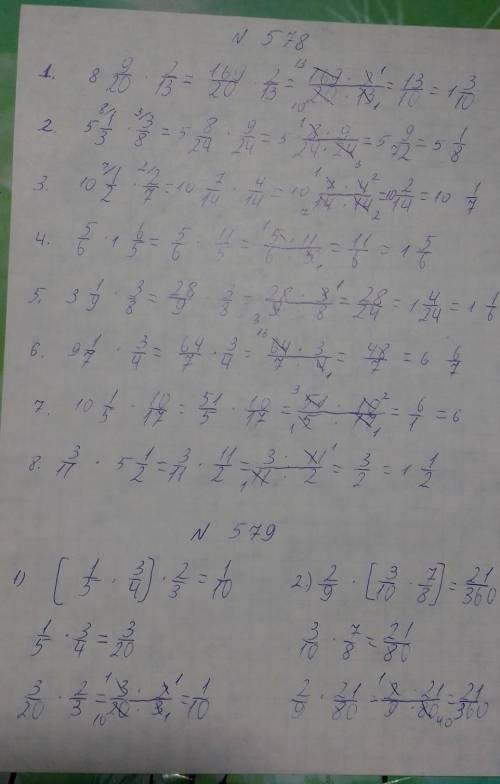 N 578
1. 8 9/20 · 2/13 = 169/20 · 2/13 = 169 · 2 / 20 · 13 = 13/10 = 1 3/10
2. 5 1/3 · 3/8 = 5 8/24 · 9/24 = 5 8 · 9 / 24 · 24 = 5 9/72 = 5 1/8
3. 10 1/2 · 2/7 = 10 7/14 · 4/14 = 10 7 · 4 / 14 · 14 = 10 2/14 = 10 1/7
4. 5/6 · 1 6/5 = 5/6 · 11/5 = 5 · 11 / 6 · 5 = 11/6 = 1 5/6
5. 3 1/9 · 3/8 = 28/9 · 3/8 = 28 · 3 / 9 · 8 = 28/24 = 1 4/24 = 1 1/6
6. 9 1/7 · 3/4 = 64/7 · 3/4 = 64 · 3 / 7 · 4 = 48/7 = 6 6/7
7. 10 1/5 · 10/17 = 51/5 · 10/17 = 51 · 10 / 5 · 17 = 6/1 = 6
8. 3/11 · 5 1/2 = 3/11 · 11/2 = 3 · 11 / 11 · 2 = 3/2 = 1 1/2
N 579
1) [1/5 · 3/4] · 2/3 = 1/10 2) 2/9 · [3/10 · 7/8] = 21/360
1/5 · 3/4 = 3/20 3/10 · 7/8 = 21/80
3/20 · 2/3 = 3 · 2 / 20 · 3 = 1/10 2/9 · 21/80 = 2 · 21 / 9 · 80 = 21/360